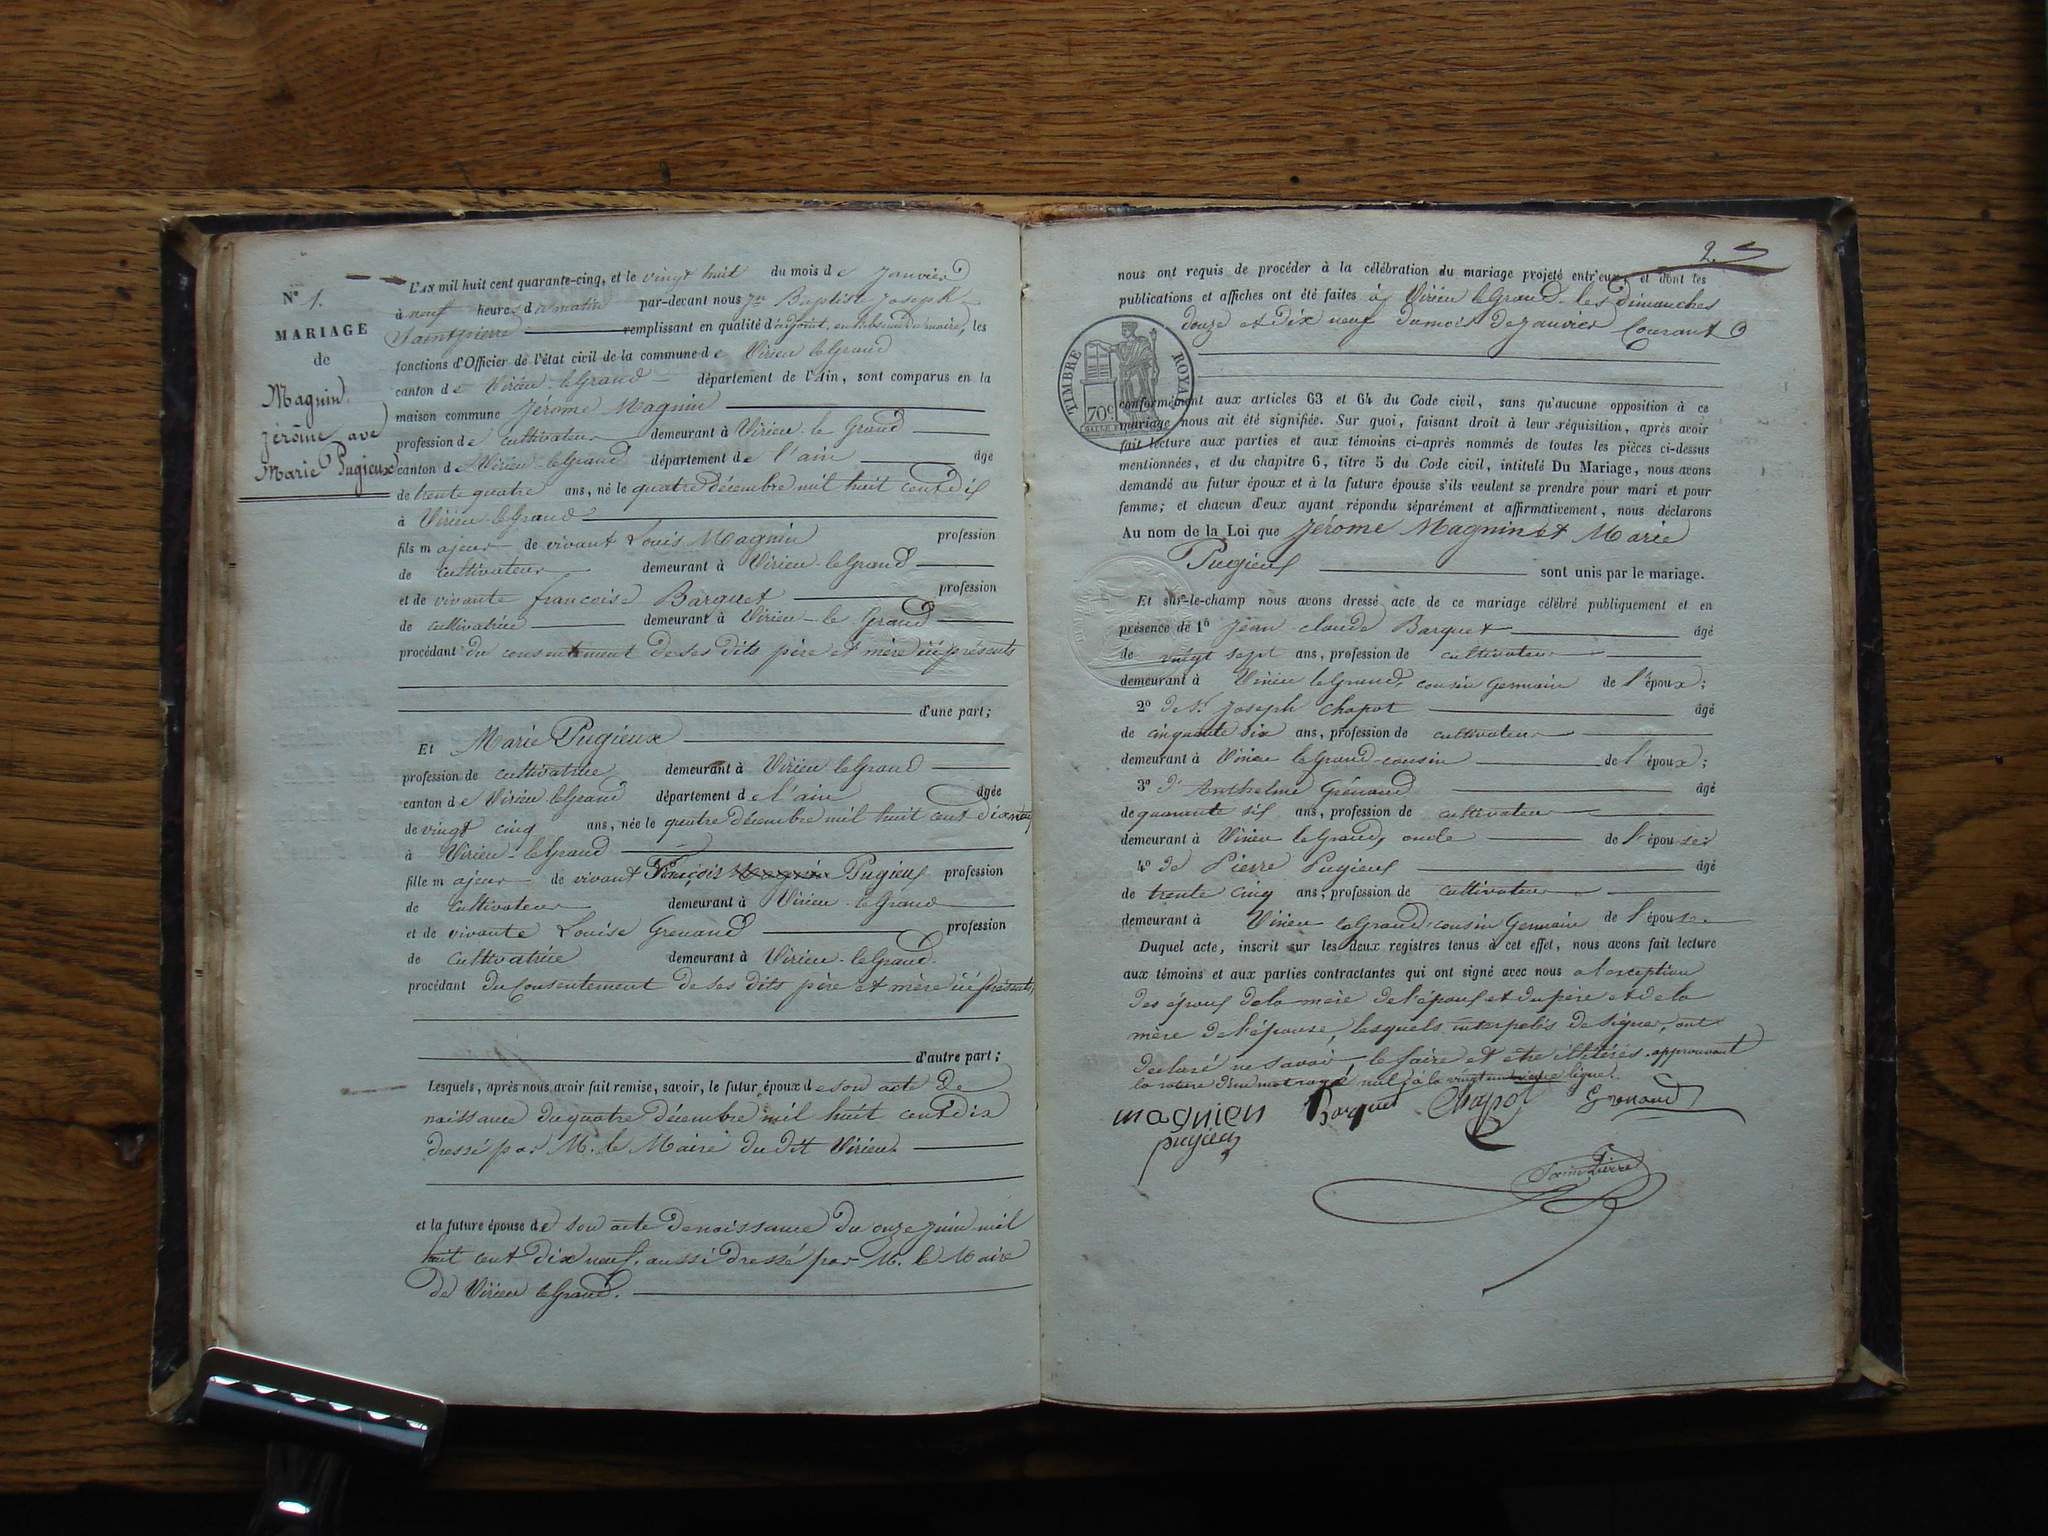 N° 1.
MARIAGE
de
Magnin
Jérôme ave
Marie Pugieux
L'AN mil huit cent quarante-cinq, et le vingt huit du mois de Janvier
à neuf heures du matin par-devant nous Jn Baptiste Joseph
Saintpierre remplissant en qualité d'adjoint, en absence du maire, les
fonctions d'Officier de l'état civil de la commune de Virieu le Grand
canton de Virieu-le Grand département de l'Ain, sont comparus en la
maison commune Jérome Magnin
profession de cultivateur demeurant à Virieu-le Grand
canton de Virieu-le Grand département de l'ain âgé
de trente quatre ans, né le quatre décembre mil huit cent dix
à Virieu-le Grand
fils majeur de vivant Louis Magnin profession
de cultivateur demeurant à Virieu-le Grand
et de vivante francoise Barquet profession
de cultivatrice demeurant à Virieu-le Grand
procédant du consentement de ses dits père et mère ici présents
d'une part;
Et Marie Pugieux
profession de cultivatrice demeurant à Virieu le Grand
canton de Virieu le Grand département de l'ain âgée
de vingt cinq ans, née le quatre décembre mil huit cent dix neuf
à Virieu-le Grand
fille majeur de vivant François Magnin Pugieux profession
de cultivateur demeurant à Virieu-le Grand
et de vivante Louise Grenand profession
de cultivatrice demeurant à Virieu-le Grand
procédant du consentement de ses dits père et mère ici présents
d'autre part;
Lesquels, après nous avoir fait remise, savoir, le futur époux de son acte de
naissance du quatre décembre mil huit cent dix
dressé par M. le Maire du dit Virieu
et la future épouse de son acte de naissance du onze juin mil
huit cent dix neuf, aussi dressé par M. le Maire
de Virieu le Grand.
2.
nous ont requis de procéder à la célébration du mariage projeté entr'eux, et dont les
publications et affiches ont été faites à Virieu le Grand les dimanches
douze et dix neuf du mois de janvier Courant
TIMBRE ROYAL
70c
conformément aux articles 63 et 64 du Code civil, sans qu'aucune opposition à ce
mariage nous ait été signifiée. Sur quoi, faisant droit à leur réquisition, après avoir
fait lecture aux parties et aux témoins ci-après nommés de toutes les pièces ci-dessus
mentionnées, et du chapitre 6, titre 5 du Code civil, intitulé Du Mariage, nous avons
demandé au futur époux et à la future épouse s'ils veulent se prendre pour mari et pour
femme; et chacun d'eux ayant répondu séparément et affirmativement, nous déclarons
Au nom de la Loi que Jérome Magnin et Marie
Pugieux sont unis par le mariage.
Et sur-le-champ nous avons dressé acte de ce mariage célébré publiquement et en
présence de 1° Jean claude Barquet âgé
de vingt sept ans, profession de cultivateur
demeurant à Virieu le Grand, cousin Germain de l'époux;
2° de St. Joseph Chapot âgé
de cinquante six ans, profession de cultivateur
demeurant à Virieu le Grand cousin de l'époux;
3° d'Anthelme Grenand âgé
de quarante six ans, profession de cultivateur
demeurant à Virieu le Grand, oncle de l'épouse;
4° de Pierre Pugieux âgé
de trente cinq ans, profession de cultivateur
demeurant à Virieu le Grand cousin Germain de l'épouse
Duquel acte, inscrit sur les deux registres tenus à cet effet, nous avons fait lecture
aux témoins et aux parties contractantes qui ont signé avec nous a l'exception
des époux de la mère de l'époux et du père et de la
mère de l'épouse, lesquels interpelés de signer, ont
déclaré ne savoir le faire et etre illitérés. approuvant
la rature d'un mot rayé nul à la vingt unième ligne.
magnien Barquet Chapot Grenand
pugieux
Saintpierre